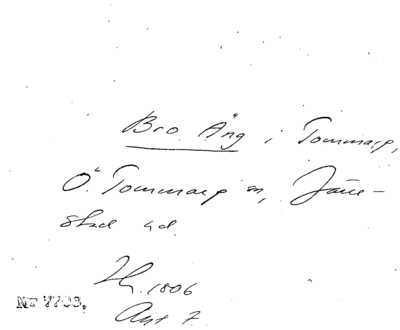 Bro Äng i Tommarp,
Ö. Tommarp sn, Järre-
stad hd.
1806
Akt 7.